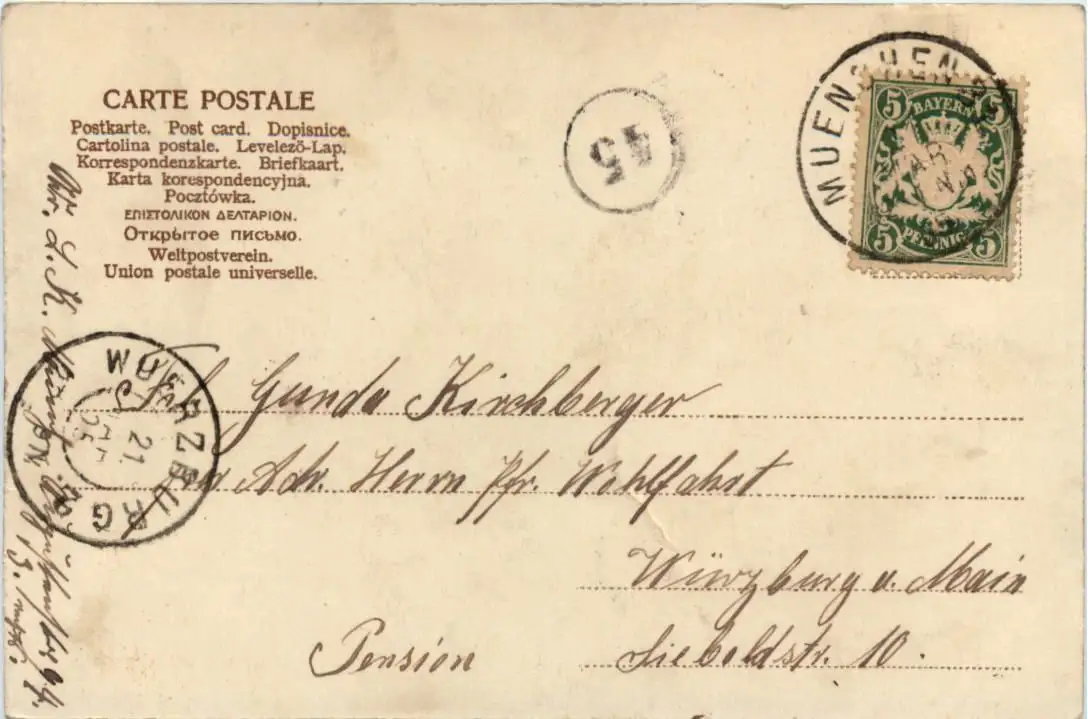 CARTE POSTALE
Postkarte. Post card. Dopisnice.
Cartolina postale. Levelező-Lap.
Korrespondenzkarte. Briefkaart.
Karta korespondencyjna.
Pocztówka.
ΕΠΙΣΤΟΛΙΚΟΝ ΔΕΛΤΑΡΙΟΝ.
Открытое письмо.
Weltpostverein.
Union postale universelle.
45
MUENCHEN
5 BAYERN 5
5 PFENNIG 5
WUERZBURG
21
Frl. Gunda Kirchberger
Adr. Herrn Pfr. Wohlfahrt
Würzburg a. Main
Pension Sieboldstr. 10.